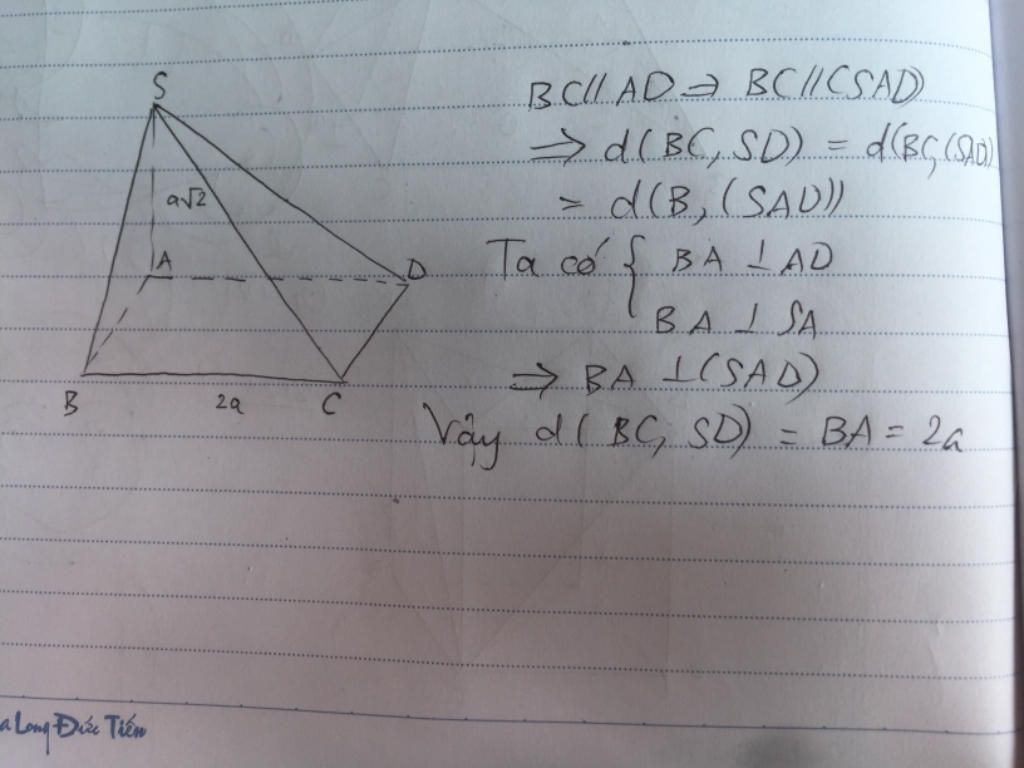 S
a√2
A
D
B
2a
C
BC // AD ⇒ BC // (SAD)
⇒ d(BC, SD) = d(BC, (SAD))
= d(B, (SAD))
Ta có { BA ⊥ AD
BA ⊥ SA
⇒ BA ⊥ (SAD)
Vậy d(BC, SD) = BA = 2a
a Long Đức Tiến